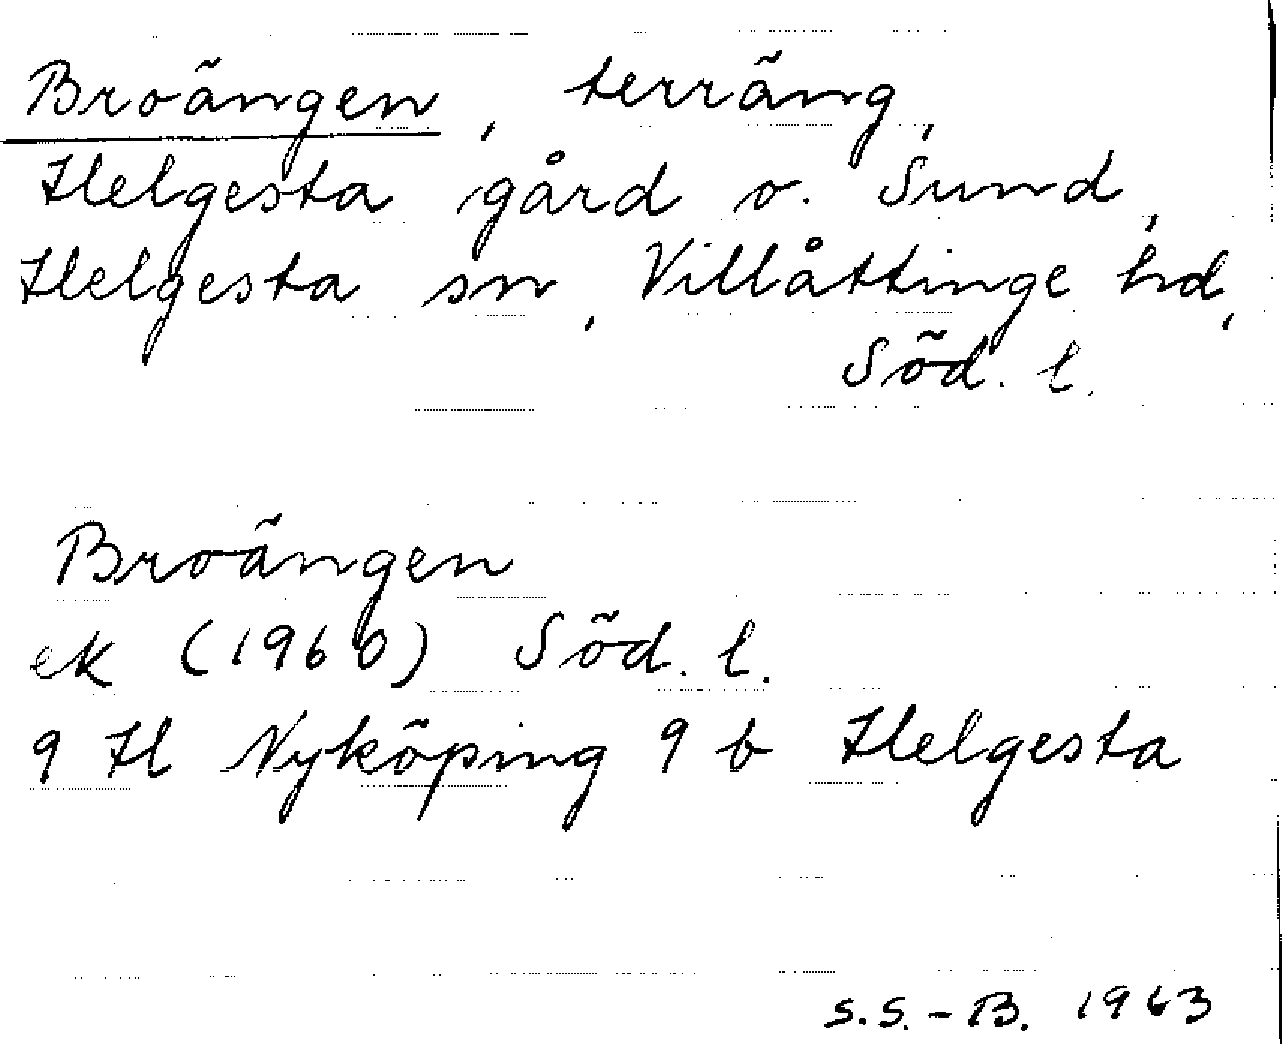 Broängen, terräng,
Helgesta gård o. Sund,
Helgesta sn, Villåttinge hd,
Söd. l.
Broängen
ek (1960) Söd. l.
9 H Nyköping 9 b Helgesta
S.S.-B. 1963